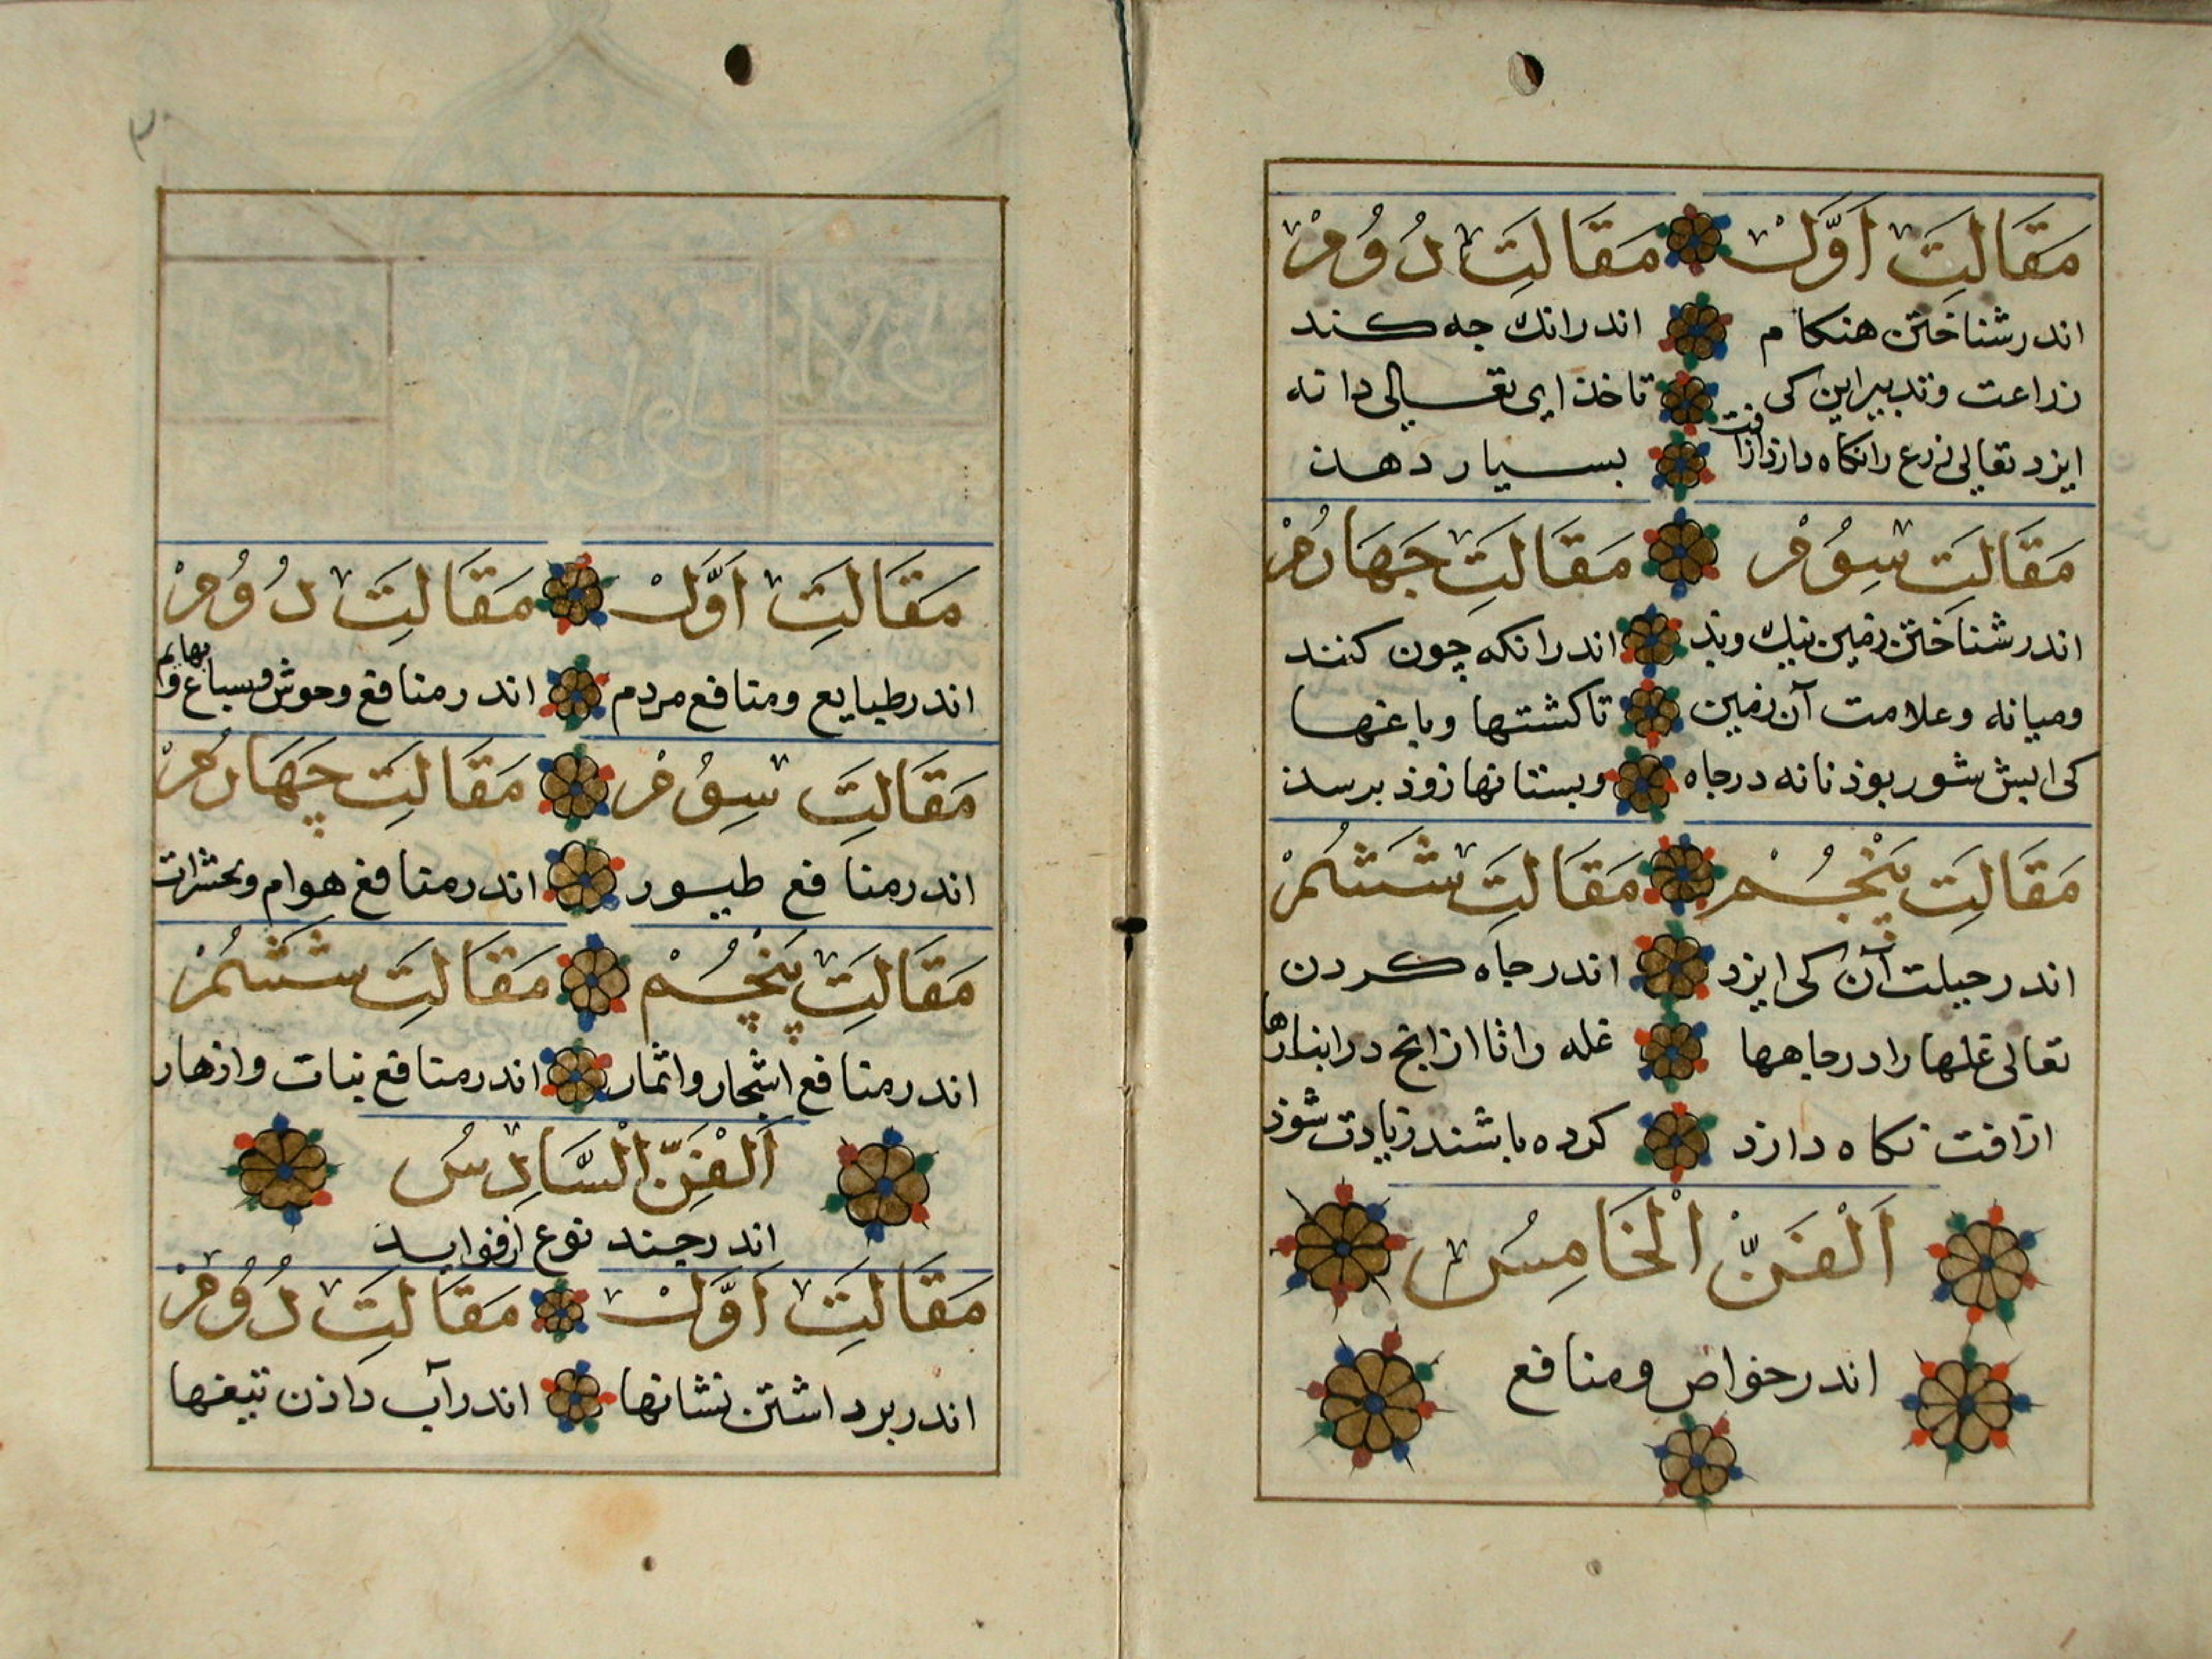 مَقَالَتِ اَوَّلْ مَقَالَتِ دُوُمْ
اندر شناختن هنكام اندر انك جه كند
زراعت و تدبير اين كى تا خذاى تعالى دانه
ايزد تعالى زرع را نكاه دارذ از افت بسيار دهذ
مَقَالَتِ سِوُمْ مَقَالَتِ جَهَارُمْ
اندر شناختن زمين نيك و بد اندر انكه چون كنند
وميانه وعلامت آن زمين تا كشتها وباغها
كى ايش شور بوذ نانه در جاه وبستانها زوذ برسد
مَقَالَتِ پَنْجُمْ مَقَالَتِ شَشُمْ
اندر حيلت آن كى ايزد اندر جاه كردن
تعالى غلها را در جاهها غله را تا از انج در انبارها
از افت نكاه دارد كرده باشند زيادت شوذ
اَلْفَنُّ الْخَامِسُ
اندر خواص ومنافع
٣
مَقَالَتِ اَوَّلْ مَقَالَتِ دُوُمْ
اندر طبايع ومنافع مردم اندر منافع وحوش وسباع و بهايم
مَقَالَتِ سِوُمْ مَقَالَتِ چَهَارُمْ
اندر منافع طيور اندر منافع هوام وحشرات
مَقَالَتِ پَنْجُمْ مَقَالَتِ شَشُمْ
اندر منافع اشجار واثمار اندر منافع نبات وازهار
اَلْفَنُّ السَّادِسُ
اندر جند نوع از فوايد
مَقَالَتِ اَوَّلْ مَقَالَتِ دُوُمْ
اندر برداشتن نشانها اندر آب داذن تيغها